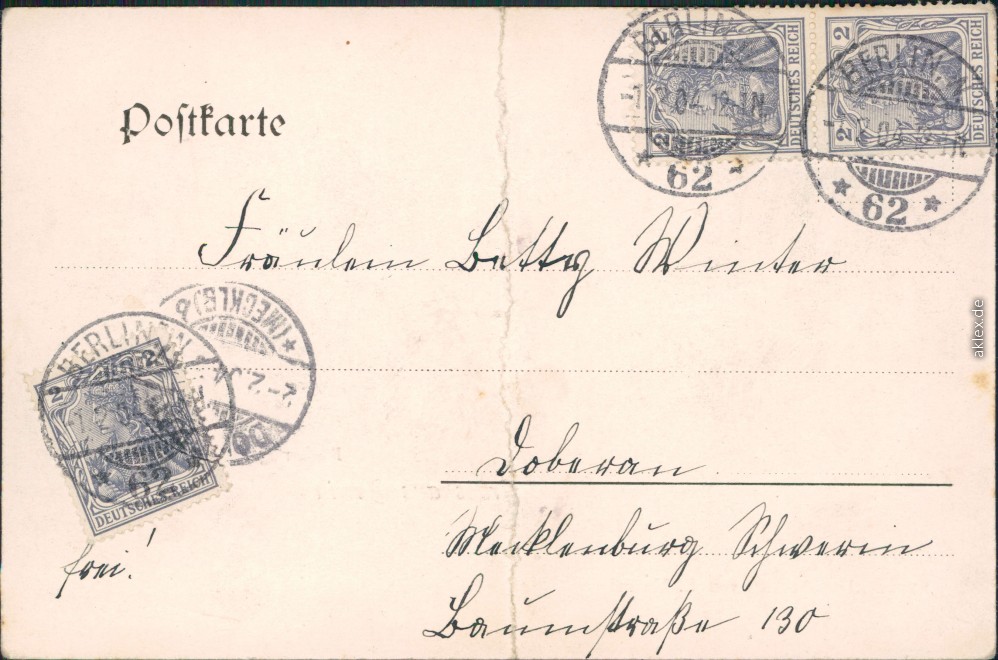 BERLIN W
62
2
DEUTSCHES REICH
2
2
DEUTSCHES REICH
BERLIN W
62
Postkarte
Fräulein Betty Winter
(MECKLB)
BERLIN W
62
2
2
DEUTSCHES REICH
Doberan
Mecklenburg Schwerin
frei!
Baumstraße 130
aklex.de